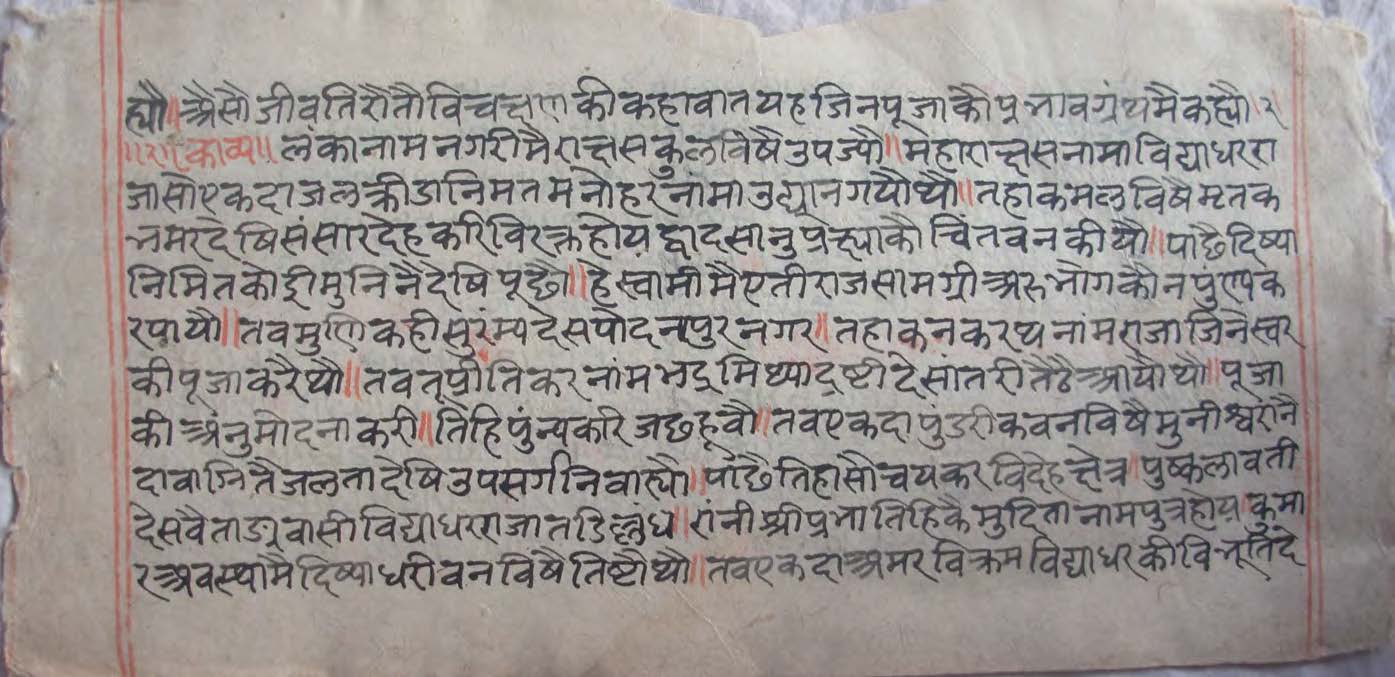 ह्यौ॥ अैसौ जीवतिरौ तौ विचक्षण की कहा वात यह जिनपूजाकौ प्रभाव ग्रंथमै कह्यौ।२
काव्य॥ लंकानाम नगरीमै राक्षसकुलविषै उपज्यौ॥ महाराक्षसनामा विद्याधररा
जा सो एकदा जलक्रीडा निमत मनौहरनांमा उद्यान गयौ थौ॥ तहा कमलविषै मृतक
भ्रमर देषि संसार देह करि विरक्त होय द्वादसानुप्रेक्ष्याकौ चिंतवन कीयौ॥ पाछै दिष्या
निमित कोई मुनिनै देषि पूछौ॥ हे स्वामी मै एती राजसामग्री अरु भोग कौन पुंण्य क
र पायौ॥ तव मुणि कही सुरंम्यदेस पौदनापुर नगर॥ तहा कनकरथ नांम राजा जिनैस्वर
की पूजा करै थौ॥ तव तू प्रीतिकर नांम भद्र मिथ्यादृष्टी देसांतरी तैठै आयौ थौ॥ पूजा
की अंनुमोदना करी॥ तिहि पुंन्य करि जछ हूवौ॥ तव एकदा पुंडरीकवनविषै मुनीश्वरांनै
दावाग्नितै जलता देषि उपसर्ग निवास्यौ॥ पाछै तिहासौ चय कर विदेहक्षेत्र। पुष्कलावती
देस वैताड्यवासी विद्याधरराजा तडिल्लंघ॥ रांनी श्रीप्रभा तिहिकै मुदिता नाम पुत्र होय। कुमा
र अवस्थामै दिष्या धरी वनविषै तिष्टौ थौ॥ तव एकदा अमरविक्रम विद्याधरकी विभूति दे